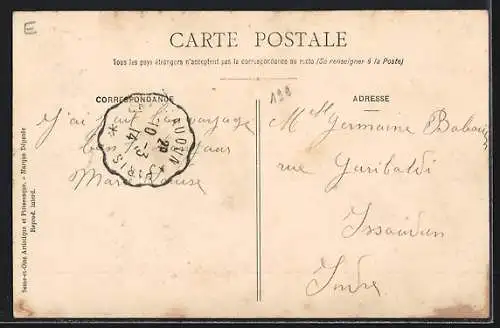 E
CARTE POSTALE
Tous les pays étrangers n'acceptent pas la correspondance au recto (Se renseigner à la Poste)
CORRESPONDANCE
ADRESSE
J'ai fait bon voyage
bon
Marie Louise
20
10-3
14
PARIS
Mlle Germaine
rue Garibaldi
Issoudun
Indre
Seine-et-Oise Artistique et Pittoresque. - Marque Déposée
Reprod. interd.